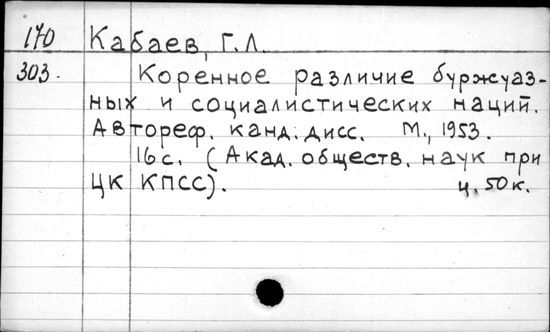 170 Кабаев, Г.Л.
303. Коренное различие буржуаз-
ных и социалистических наций.
Автореф. канд. дисс. М., 1953.
16 с. (Акад. обществ. наук при
ЦК КПСС). ц. 50 к.